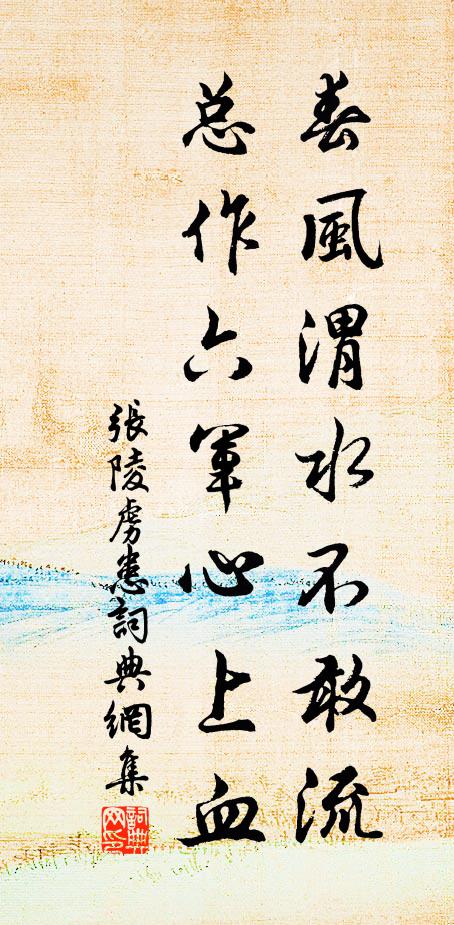 春風渭水不敢流
总作六軍心上血
張陵虏患詞典網集
詞典
网印